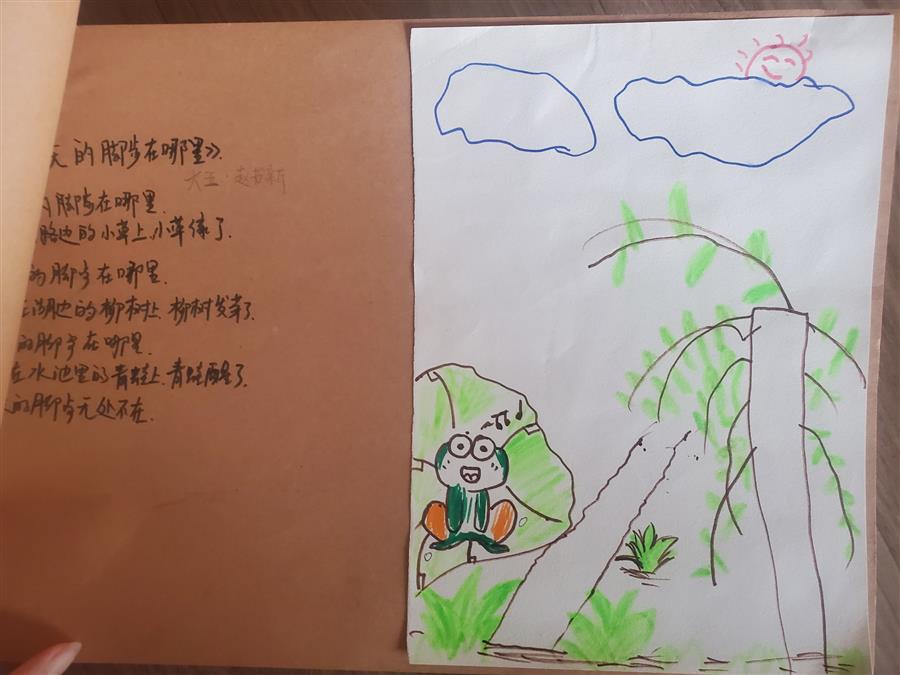 天的脚步在哪里》.
大五
的脚步在哪里.
路边的小草上,小草绿了.
的脚步在哪里.
在湖边的柳树上,柳树发芽了.
的脚步在哪里.
在水池里的青蛙上,青蛙醒了.
的脚步无处不在.